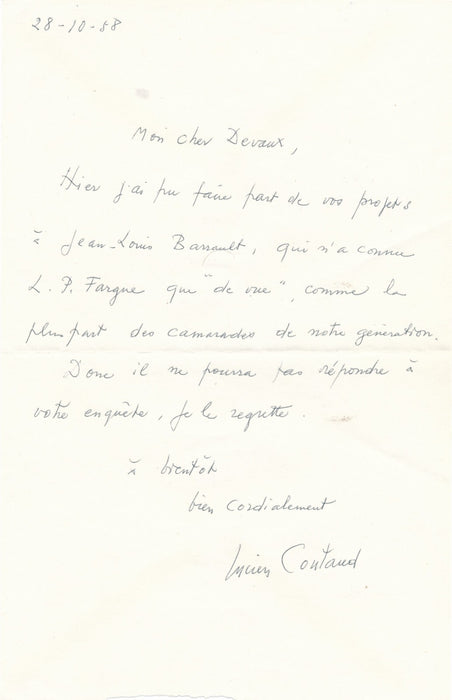 28-10-58
Mon cher Devaux,
Hier j'ai pu faire part de vos projets
à Jean-Louis Barrault, qui n'a connu
L. P. Fargue que "de vue", comme la
plus part des camarades de notre génération.
Donc il ne pourra pas répondre à
votre enquête, je le regrette.
à bientôt
bien cordialement
Lucien Coutaud